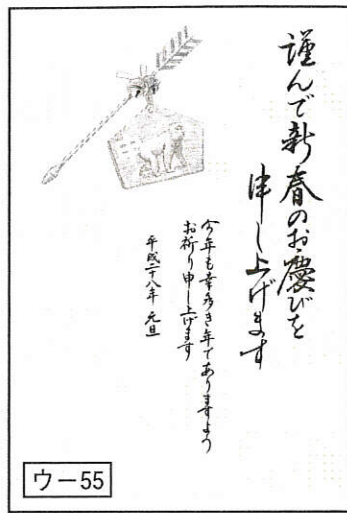 謹んで新春のお慶びを
申し上げます
今年も幸多き年でありますよう
お祈り申し上げます
平成二十八年 元旦
ウー55